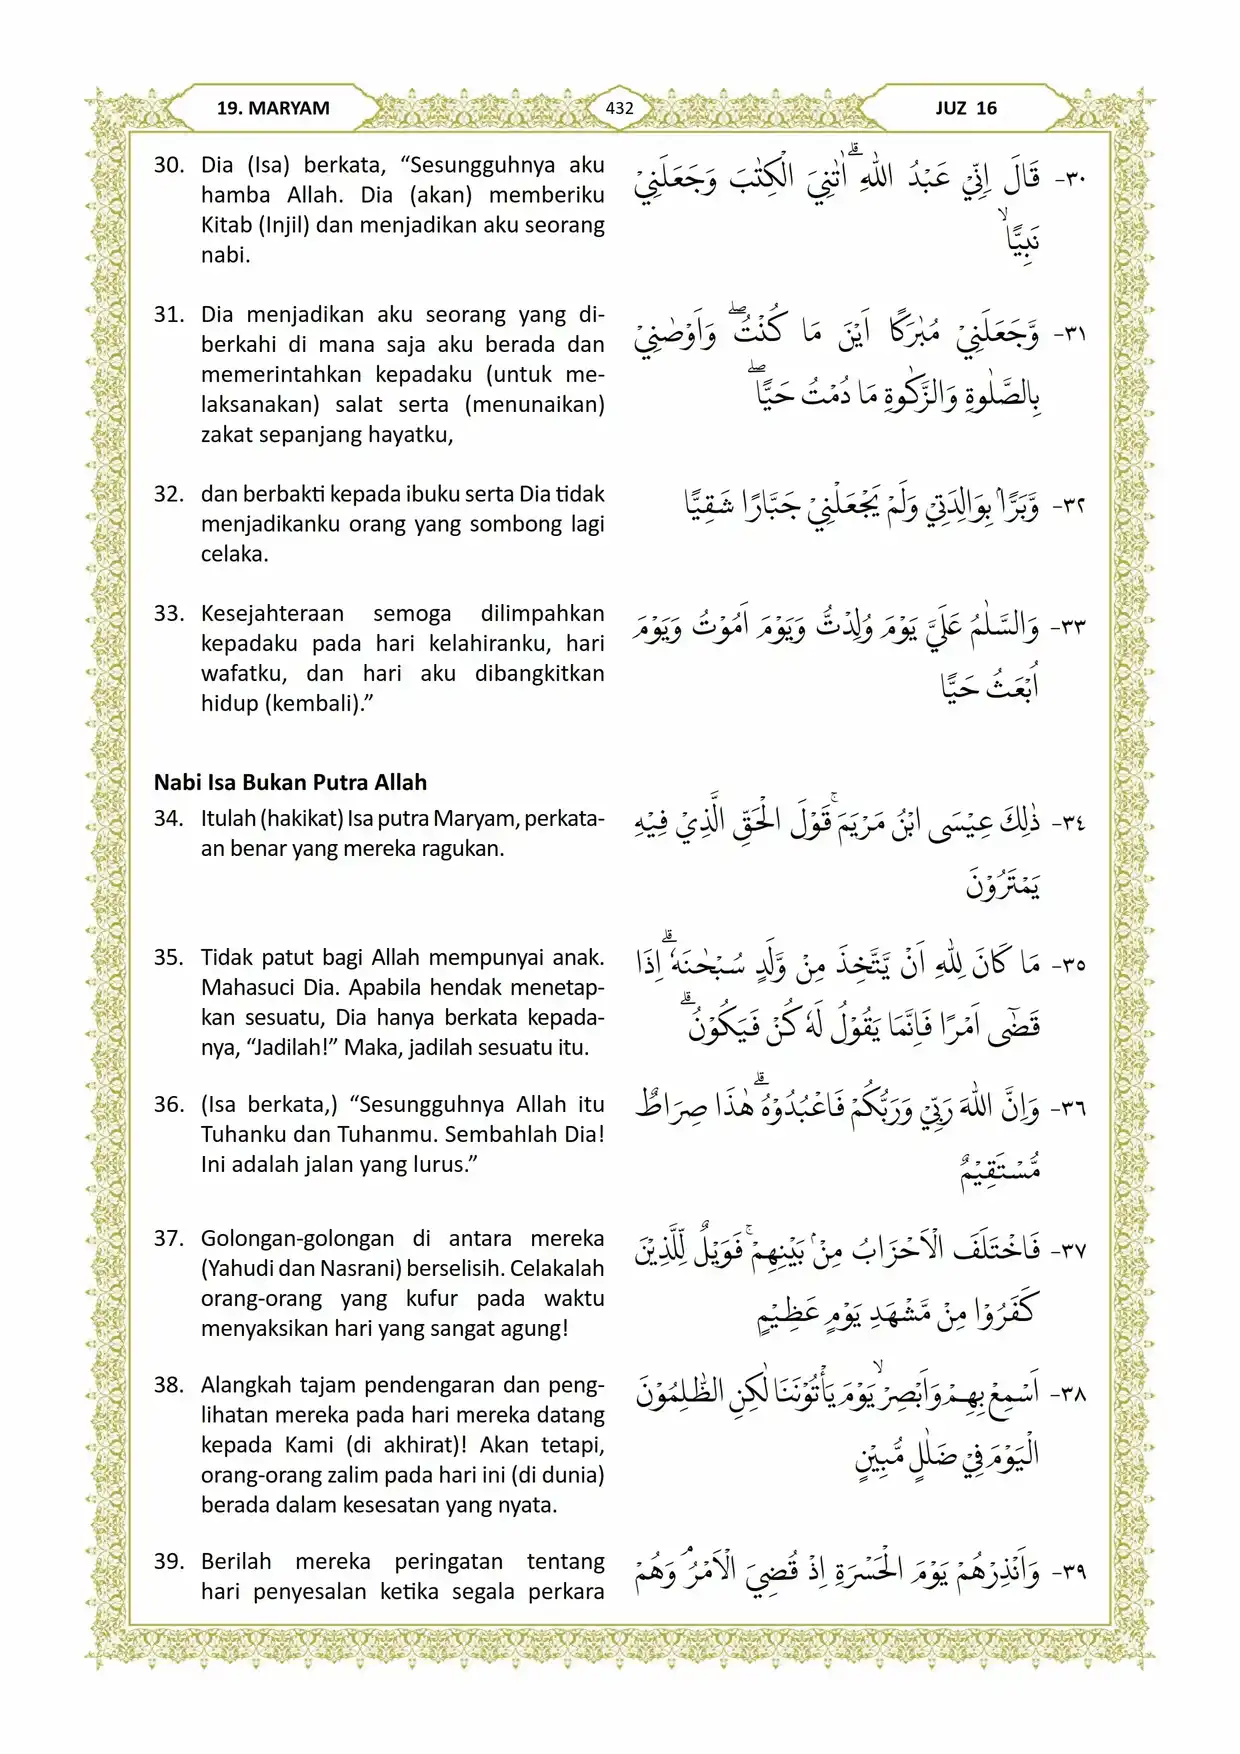 19. MARYAM
432
JUZ 16
30. Dia (Isa) berkata, “Sesungguhnya aku
hamba Allah. Dia (akan) memberiku
Kitab (Injil) dan menjadikan aku seorang
nabi.
٣٠- قَالَ اِنِّيْ عَبْدُ اللّٰهِ ۗاٰتٰنِيَ الْكِتٰبَ وَجَعَلَنِيْ
نَبِيًّا ۙ
31. Dia menjadikan aku seorang yang di-
berkahi di mana saja aku berada dan
memerintahkan kepadaku (untuk me-
laksanakan) salat serta (menunaikan)
zakat sepanjang hayatku,
٣١- وَّجَعَلَنِيْ مُبٰرَكًا اَيْنَ مَا كُنْتُۖ وَاَوْصٰنِيْ
بِالصَّلٰوةِ وَالزَّكٰوةِ مَا دُمْتُ حَيًّا ۖ
32. dan berbakti kepada ibuku serta Dia tidak
menjadikanku orang yang sombong lagi
celaka.
٣٢- وَّبَرًّاۢ بِوَالِدَتِيْ وَلَمْ يَجْعَلْنِيْ جَبَّارًا شَقِيًّا
33. Kesejahteraan semoga dilimpahkan
kepadaku pada hari kelahiranku, hari
wafatku, dan hari aku dibangkitkan
hidup (kembali).”
٣٣- وَالسَّلٰمُ عَلَيَّ يَوْمَ وُلِدْتُّ وَيَوْمَ اَمُوْتُ وَيَوْمَ
اُبْعَثُ حَيًّا
Nabi Isa Bukan Putra Allah
34. Itulah (hakikat) Isa putra Maryam, perkata-
an benar yang mereka ragukan.
٣٤- ذٰلِكَ عِيْسَى ابْنُ مَرْيَمَ ۚقَوْلَ الْحَقِّ الَّذِيْ فِيْهِ
يَمْتَرُوْنَ
35. Tidak patut bagi Allah mempunyai anak.
Mahasuci Dia. Apabila hendak menetap-
kan sesuatu, Dia hanya berkata kepada-
nya, “Jadilah!” Maka, jadilah sesuatu itu.
٣٥- مَا كَانَ لِلّٰهِ اَنْ يَّتَّخِذَ مِنْ وَّلَدٍ سُبْحٰنَهٗ ۗاِذَا
قَضٰٓى اَمْرًا فَاِنَّمَا يَقُوْلُ لَهٗ كُنْ فَيَكُوْنُ ۗ
36. (Isa berkata,) “Sesungguhnya Allah itu
Tuhanku dan Tuhanmu. Sembahlah Dia!
Ini adalah jalan yang lurus.”
٣٦- وَاِنَّ اللّٰهَ رَبِّيْ وَرَبُّكُمْ فَاعْبُدُوْهُ ۗهٰذَا صِرَاطٌ
مُّسْتَقِيْمٌ
37. Golongan-golongan di antara mereka
(Yahudi dan Nasrani) berselisih. Celakalah
orang-orang yang kufur pada waktu
menyaksikan hari yang sangat agung!
٣٧- فَاخْتَلَفَ الْاَحْزَابُ مِنْۢ بَيْنِهِمْۚ فَوَيْلٌ لِّلَّذِيْنَ
كَفَرُوْا مِنْ مَّشْهَدِ يَوْمٍ عَظِيْمٍ
38. Alangkah tajam pendengaran dan peng-
lihatan mereka pada hari mereka datang
kepada Kami (di akhirat)! Akan tetapi,
orang-orang zalim pada hari ini (di dunia)
berada dalam kesesatan yang nyata.
٣٨- اَسْمِعْ بِهِمْ وَاَبْصِرْۙ يَوْمَ يَأْتُوْنَنَا لٰكِنِ الظّٰلِمُوْنَ
الْيَوْمَ فِيْ ضَلٰلٍ مُّبِيْنٍ
39. Berilah mereka peringatan tentang
hari penyesalan ketika segala perkara
٣٩- وَاَنْذِرْهُمْ يَوْمَ الْحَسْرَةِ اِذْ قُضِيَ الْاَمْرُۘ وَهُمْ